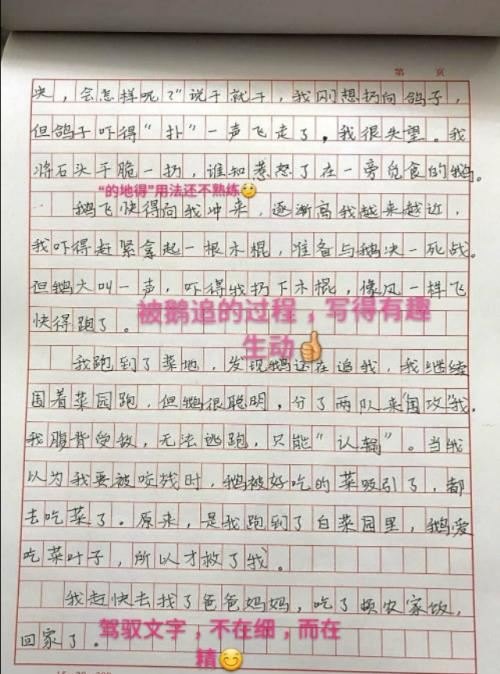 第 页
块，会怎样呢？"说干就干，我刚想扔向鸽子，
但鸽子吓得"扑"一声飞走了，我很失望。我
将石头干脆一扔，谁知惹怒了在一旁觅食的鹅。
"的地得"用法还不熟练
鹅飞快得向我冲来，逐渐离我越来越近，
我吓得赶紧拿起一根木棍，准备与鹅决一死战。
但鹅大叫一声，吓得我扔下木棍，像风一样飞
快得跑了。
被鹅追的过程，写得有趣
生动
我跑到了菜地，发现鹅还在追我，我继续
围着菜园跑，但鹅很聪明，分了两队来"围攻"我，
我腹背受敌，无法逃跑，只能"认输"。当我
以为我要被咬残时，鹅被好吃的菜吸引了，都
去吃菜了。原来，是我跑到了白菜园里，鹅爱
吃菜叶子，所以才救了我。
我赶快去找了爸爸妈妈，吃了顿农家饭，
回家了。
驾驭文字，不在细，而在
精